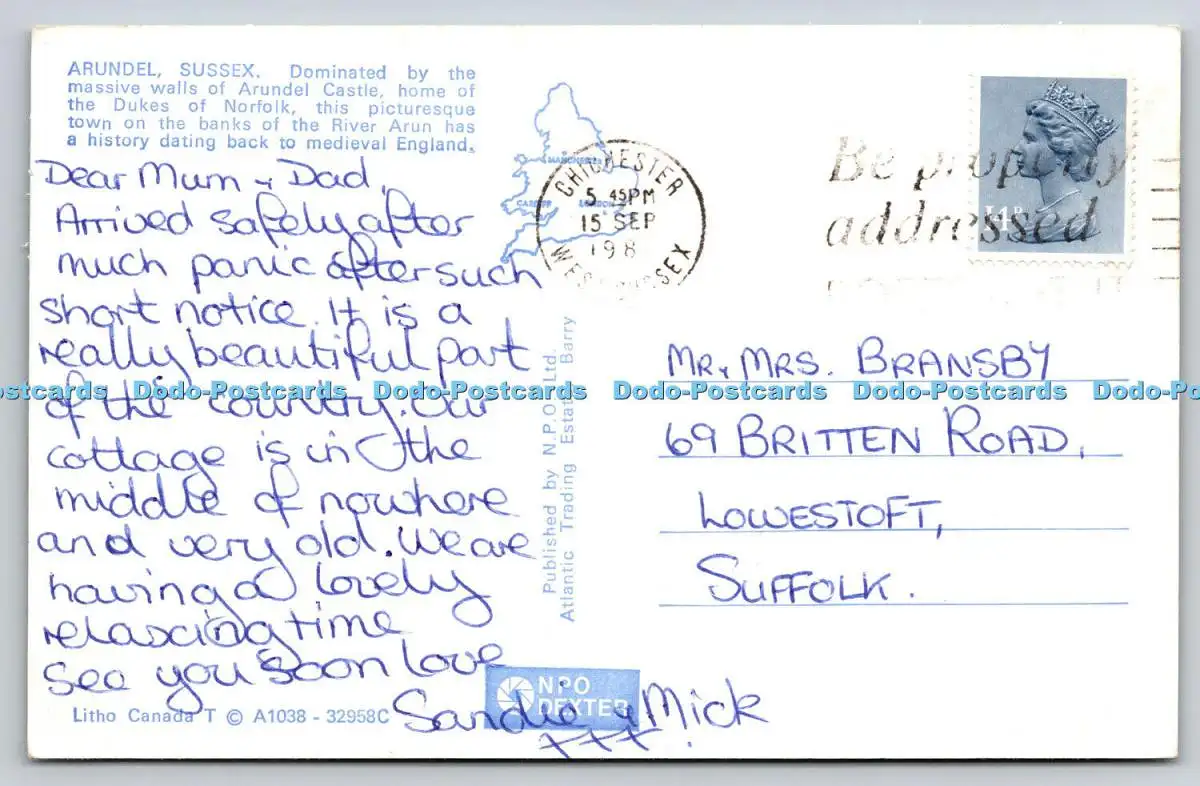 ARUNDEL, SUSSEX. Dominated by the
massive walls of Arundel Castle, home of
the Dukes of Norfolk, this picturesque
town on the banks of the River Arun has
a history dating back to medieval England.
Dear Mum & Dad,
Arrived safely after
much panic after such
short notice. It is a
really beautiful part
of the country. Our
cottage is in the
middle of nowhere
and very old. We are
having a lovely
relaxing time
See you soon love
Sandie & Mick
xxx
Litho Canada T © A1038 - 32958C
NPO
DEXTER
Published by N.P.O. Ltd.
Atlantic Trading Estate Barry
MANCHESTER
CARDIFF
LONDON
CHICHESTER
5 45PM
15 SEP
198
WEST SUSSEX
Be properly
addressed
14P
MR & MRS. BRANSBY
69 BRITTEN ROAD,
LOWESTOFT,
SUFFOLK.
Dodo-Postcards Dodo-Postcards Dodo-Postcards Dodo-Postcards Dodo-Postcards